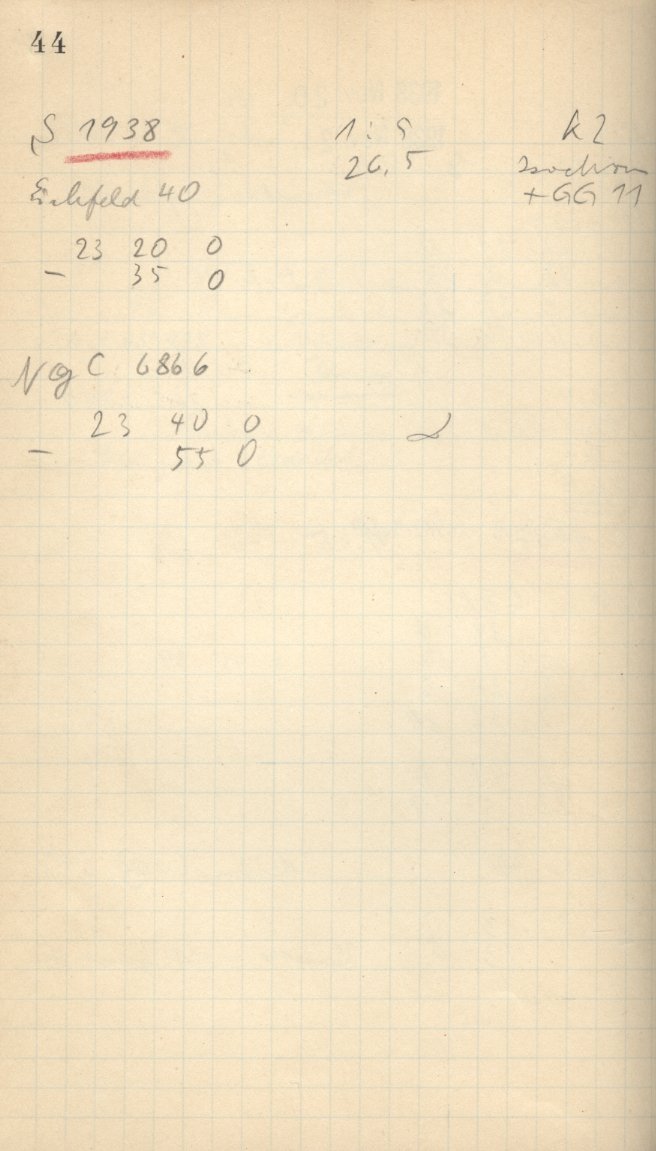 44
S 1938 1:5 k2
26,5 Isochrom
Eichfeld 40 +GG 11
23 20 0
– 35 0
NgC 6866
23 40 0
– 55 0